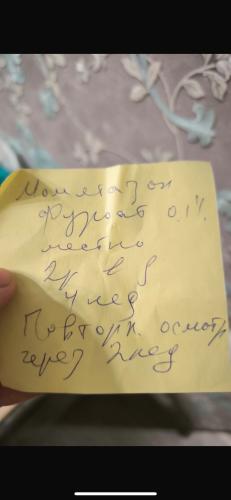 Мометазон
Фуроат 0,1%
местно
2р в д
4 нед
Повторн. осмотр
через 2 нед